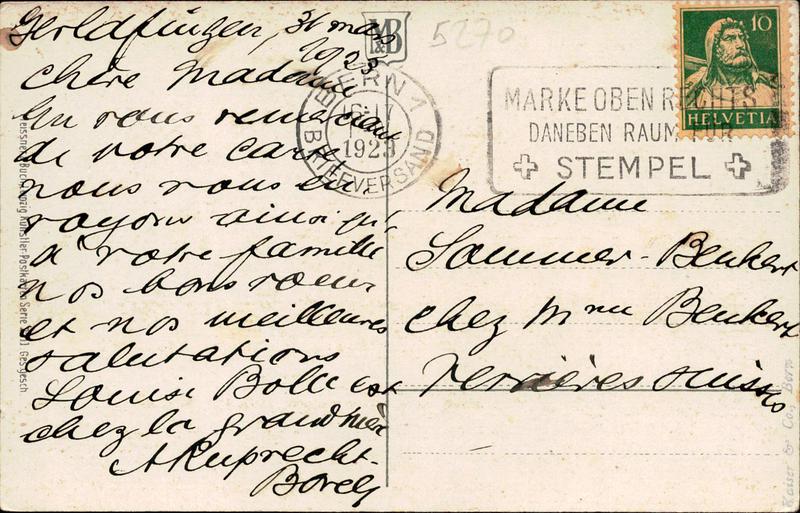 Gerolfingen, 31 mars
1923
chère Madame
En vous remerciant
de votre carte
nous vous en
voyons ainsi qu'
à votre famille
nos bons vœux
et nos meilleures
salutations
Louise Bolle est
chez la grand'mère
A Ruprecht-
Borel
M&B
5270
BERN 1
1923
BRIEFVERSAND
MARKE OBEN RECHTS
DANEBEN RAUM FÜR
STEMPEL
10
HELVETIA
Madame
Sommer-Benkert
chez Mme Benkert
Verrières Suisses
Meissner & Buch Leipzig Künstler-Postkarten Serie Ges. gesch
Kaiser & Co., Bern